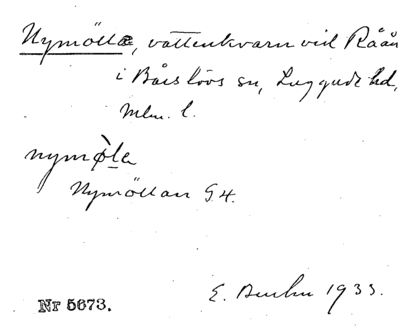 Nymölla, vattenkvarn vid Råån
i Bårslövs sn, Luggude hd,
Mlm. l.
nymø̀la
Nymöllan G.4.
E. 1933.
Nr 5673.